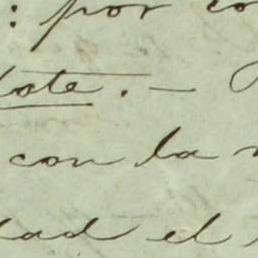 : por co
lote. —
con la
dad el